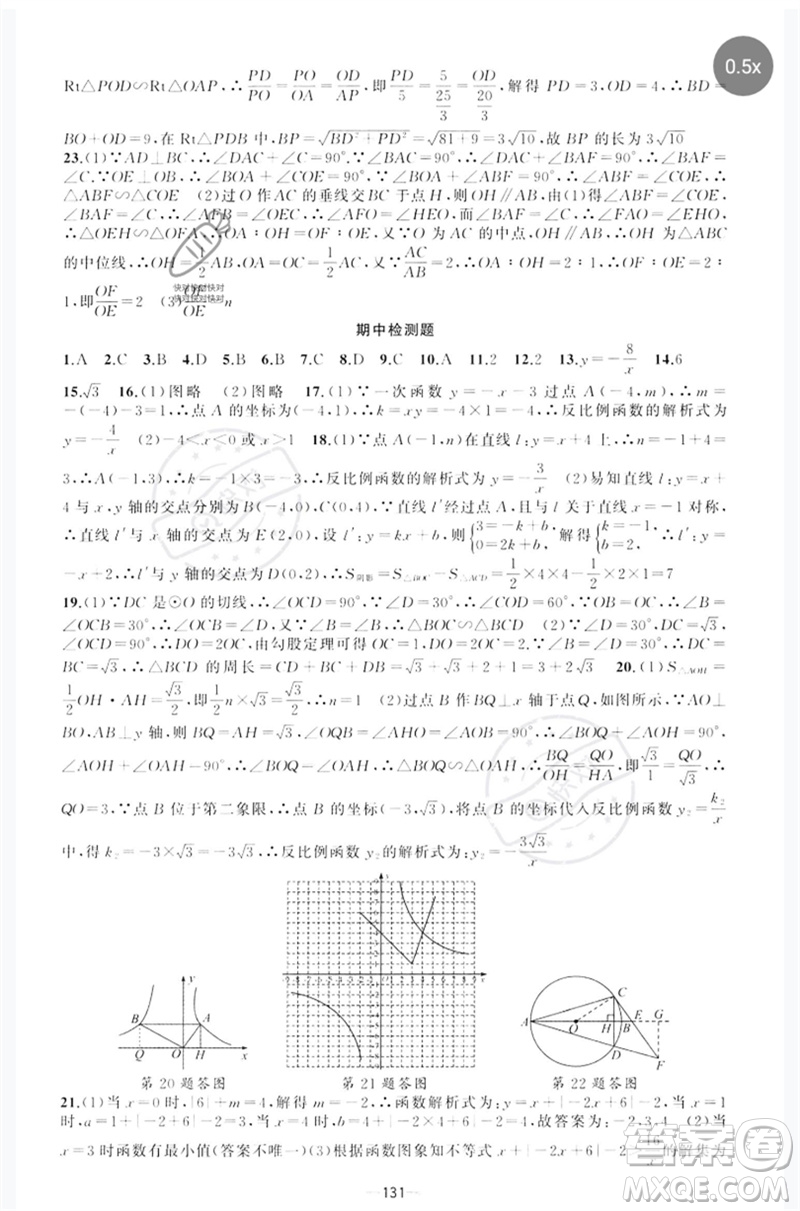 0.5x
Rt△POD∽Rt△OAP,∴PD/PO=PO/OA=OD/AP,即PD/5=5/(25/3)=OD/(20/3),解得 PD=3,OD=4,∴BD=
BO+OD=9,在 Rt△PDB 中,BP=√(BD²+PD²)=√(81+9)=3√10,故 BP 的长为 3√10
23.(1)∵AD⊥BC,∴∠DAC+∠C=90°.∵∠BAC=90°,∴∠DAC+∠BAF=90°,∴∠BAF=
∠C.∵OE⊥OB,∴∠BOA+∠COE=90°,∵∠BOA+∠ABF=90°,∴∠ABF=∠COE,∴
△ABF∽△COE (2)过 O 作 AC 的垂线交BC 于点 H,则 OH∥AB,由(1)得∠ABF=∠COE,
∠BAF=∠C,∴∠AFB=∠OEC,∴∠AFO=∠HEO,而∠BAF=∠C,∴∠FAO=∠EHO,
∴△OEH∽△OFA,∴OA∶OH=OF∶OE,又∵O 为 AC 的中点,OH∥AB,∴OH 为△ABC
的中位线,∴OH=1/2AB,OA=OC=1/2AC,又∵AC/AB=2,∴OA∶OH=2∶1,∴OF∶OE=2∶
1,即OF/OE=2 (3)OF/OE=n
快对快对快对
快对快对快对
期中检测题
1.A 2.C 3.B 4.D 5.B 6.B 7.B 8.D 9.C 10.A 11.2 12.2 13.y=-8/x 14.6
15.√3 16.(1)图略 (2)图略 17.(1)∵一次函数 y=-x-3 过点 A(-4,m),∴m=
-(-4)-3=1,∴点 A 的坐标为(-4,1),∴k=xy=-4×1=-4,∴反比例函数的解析式为
y=-4/x (2)-4<x<0或x>1 18.(1)∵点 A(-1,n)在直线 l:y=x+4上,∴n=-1+4=
3,∴A(-1,3),∴k=-1×3=-3,∴反比例函数的解析式为 y=-3/x (2)易知直线 l:y=x+
4与 x,y 轴的交点分别为 B(-4,0),C(0,4),∵直线 l′与 x 轴的交点,且与 l 关于直线 x=-1对称,
∴直线 l′与 x 轴的交点为 E(2,0),设 l′:y=kx+b,则{3=-k+b, 0=2k+b,解得{k=-1, b=2,∴l′:y
=-x+2,∴l′与 y 轴的交点为 D(0,2),∴S阴影=S△BOC-S△ACD=1/2×4×4-1/2×2×1=7
19.(1)∵DC 是⊙O 的切线,∴∠OCD=90°,∵∠D=30°,∴∠COD=60°,∵OB=OC,∴∠B=
∠BCO=30°,∴∠BCO=∠D,又∵∠B=∠B,∴△BOC∽△BCD (2)∵∠D=30°,DC=
√3,∠OCD=90°,∴DO=2OC,由勾股定理可得 OC=1,DO=2OC=2.∵∠B=∠D,∴DC=
BC=√3,∴△BCD 的周长=CD+BC+DB=√3+√3+2+1=3+2√3 20.(1)S△AOH=
1/2OH·AH=√3/2,即1/2n×√3=√3/2,∴n=1 (2)过点 B 作BQ⊥x 轴于点 Q,如图所示,∵AO⊥
BO,AB⊥y 轴,则BQ=AH=√3,∴∠OQB=∠AHO=∠AOB=90°,∵∠BOQ+∠AOH=90°,
∠AOH+∠OAH=90°,∴∠BOQ=∠OAH,∴△BOQ∽△OAH,∴BQ/OH=QO/HA,即√3/1=QO/√3,∴
QO=3,∵点 B 位于第二象限,∴点 B 的坐标(-3,√3),将点 B 的坐标代入反比例函数 y₂=k₂/x
中,得 k₂=-3×√3=-3√3,∴反比例函数 y₂的解析式为:y₂=-3√3/x
第 20 题答图
第 21 题答图
第 22 题答图
21.(1)当 x=0时,|6|+m=4,解得 m=-2,∴函数解析式为:y=x+|-2x+6|-2,当 x=1
时,a=1+|-2+6|-2=3,当 x=4时,b=4+|-2×4+6|-2=4.故答案为:-2,3,4 (2)当
x=3时函数有最小值(答案不唯一)(3)根据函数图象知不等式 x+|-2x+6|-2>16/x的解集为
131
答案卷
MXQE.COM